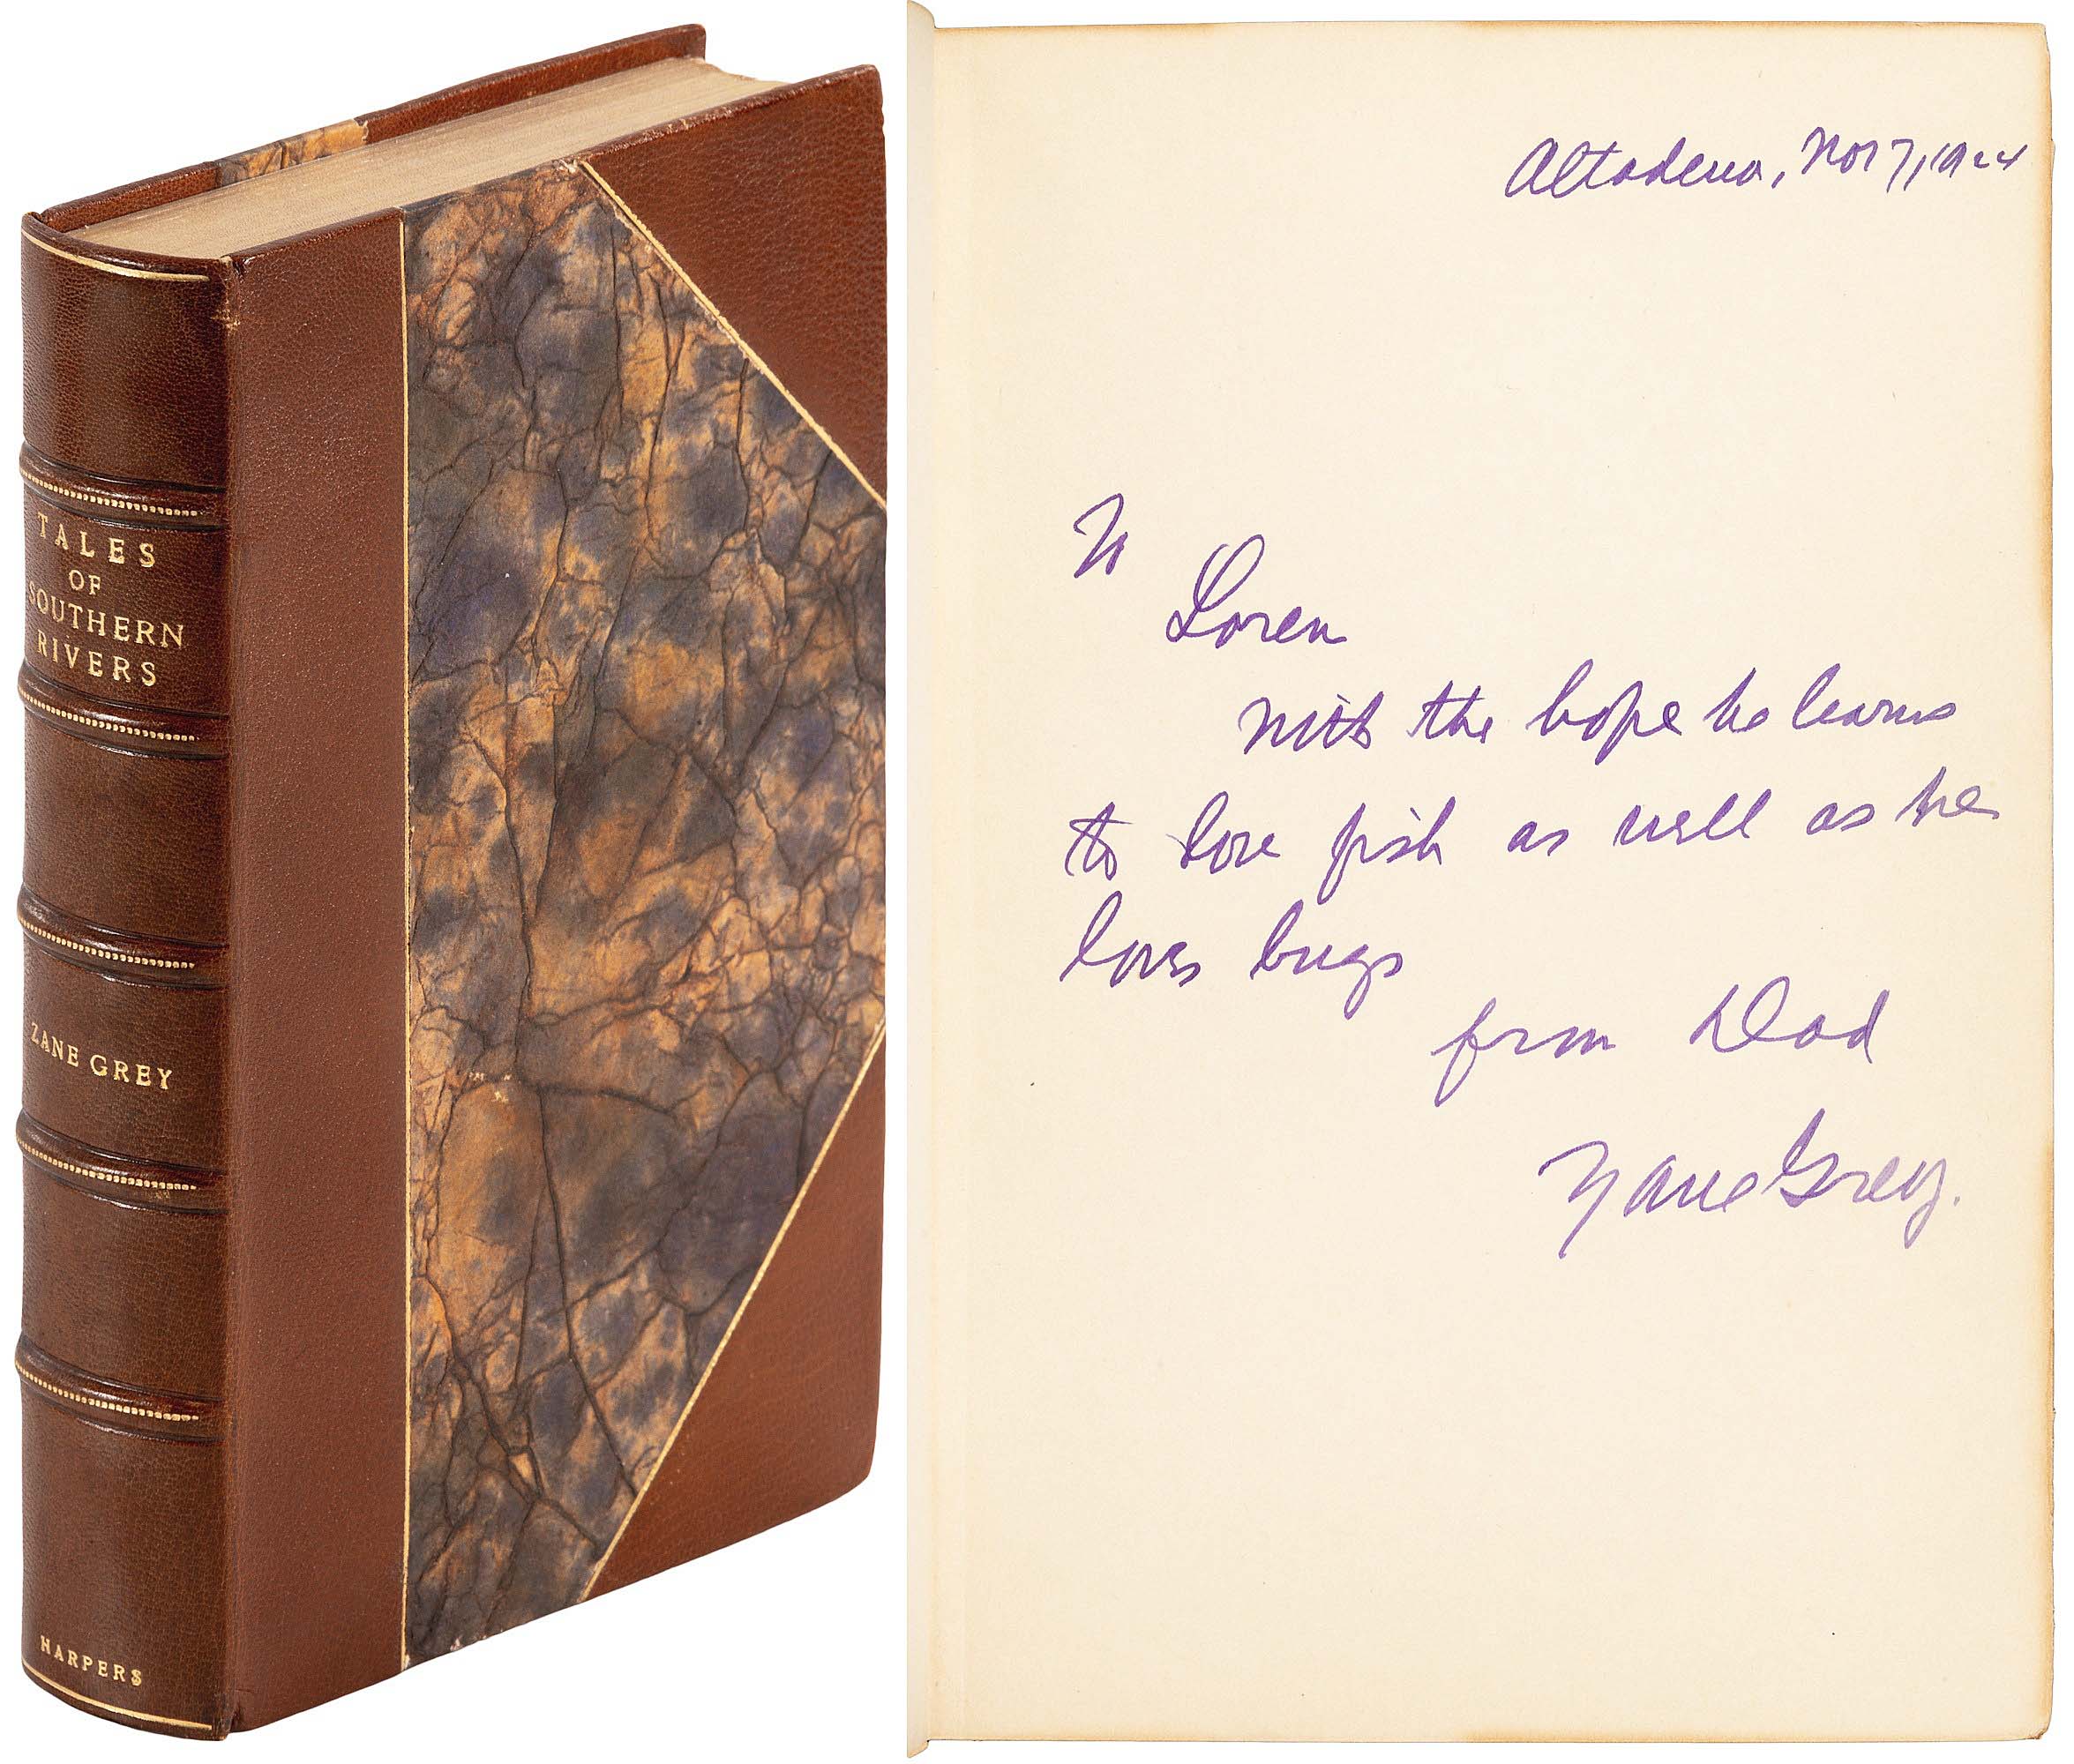 TALES
OF
SOUTHERN
RIVERS
ZANE GREY
HARPERS
Altadena, Nov 7, 1924
To
Loren
with the hope he learns
to love fish as well as he
loves bugs
from Dad
Zane Grey.